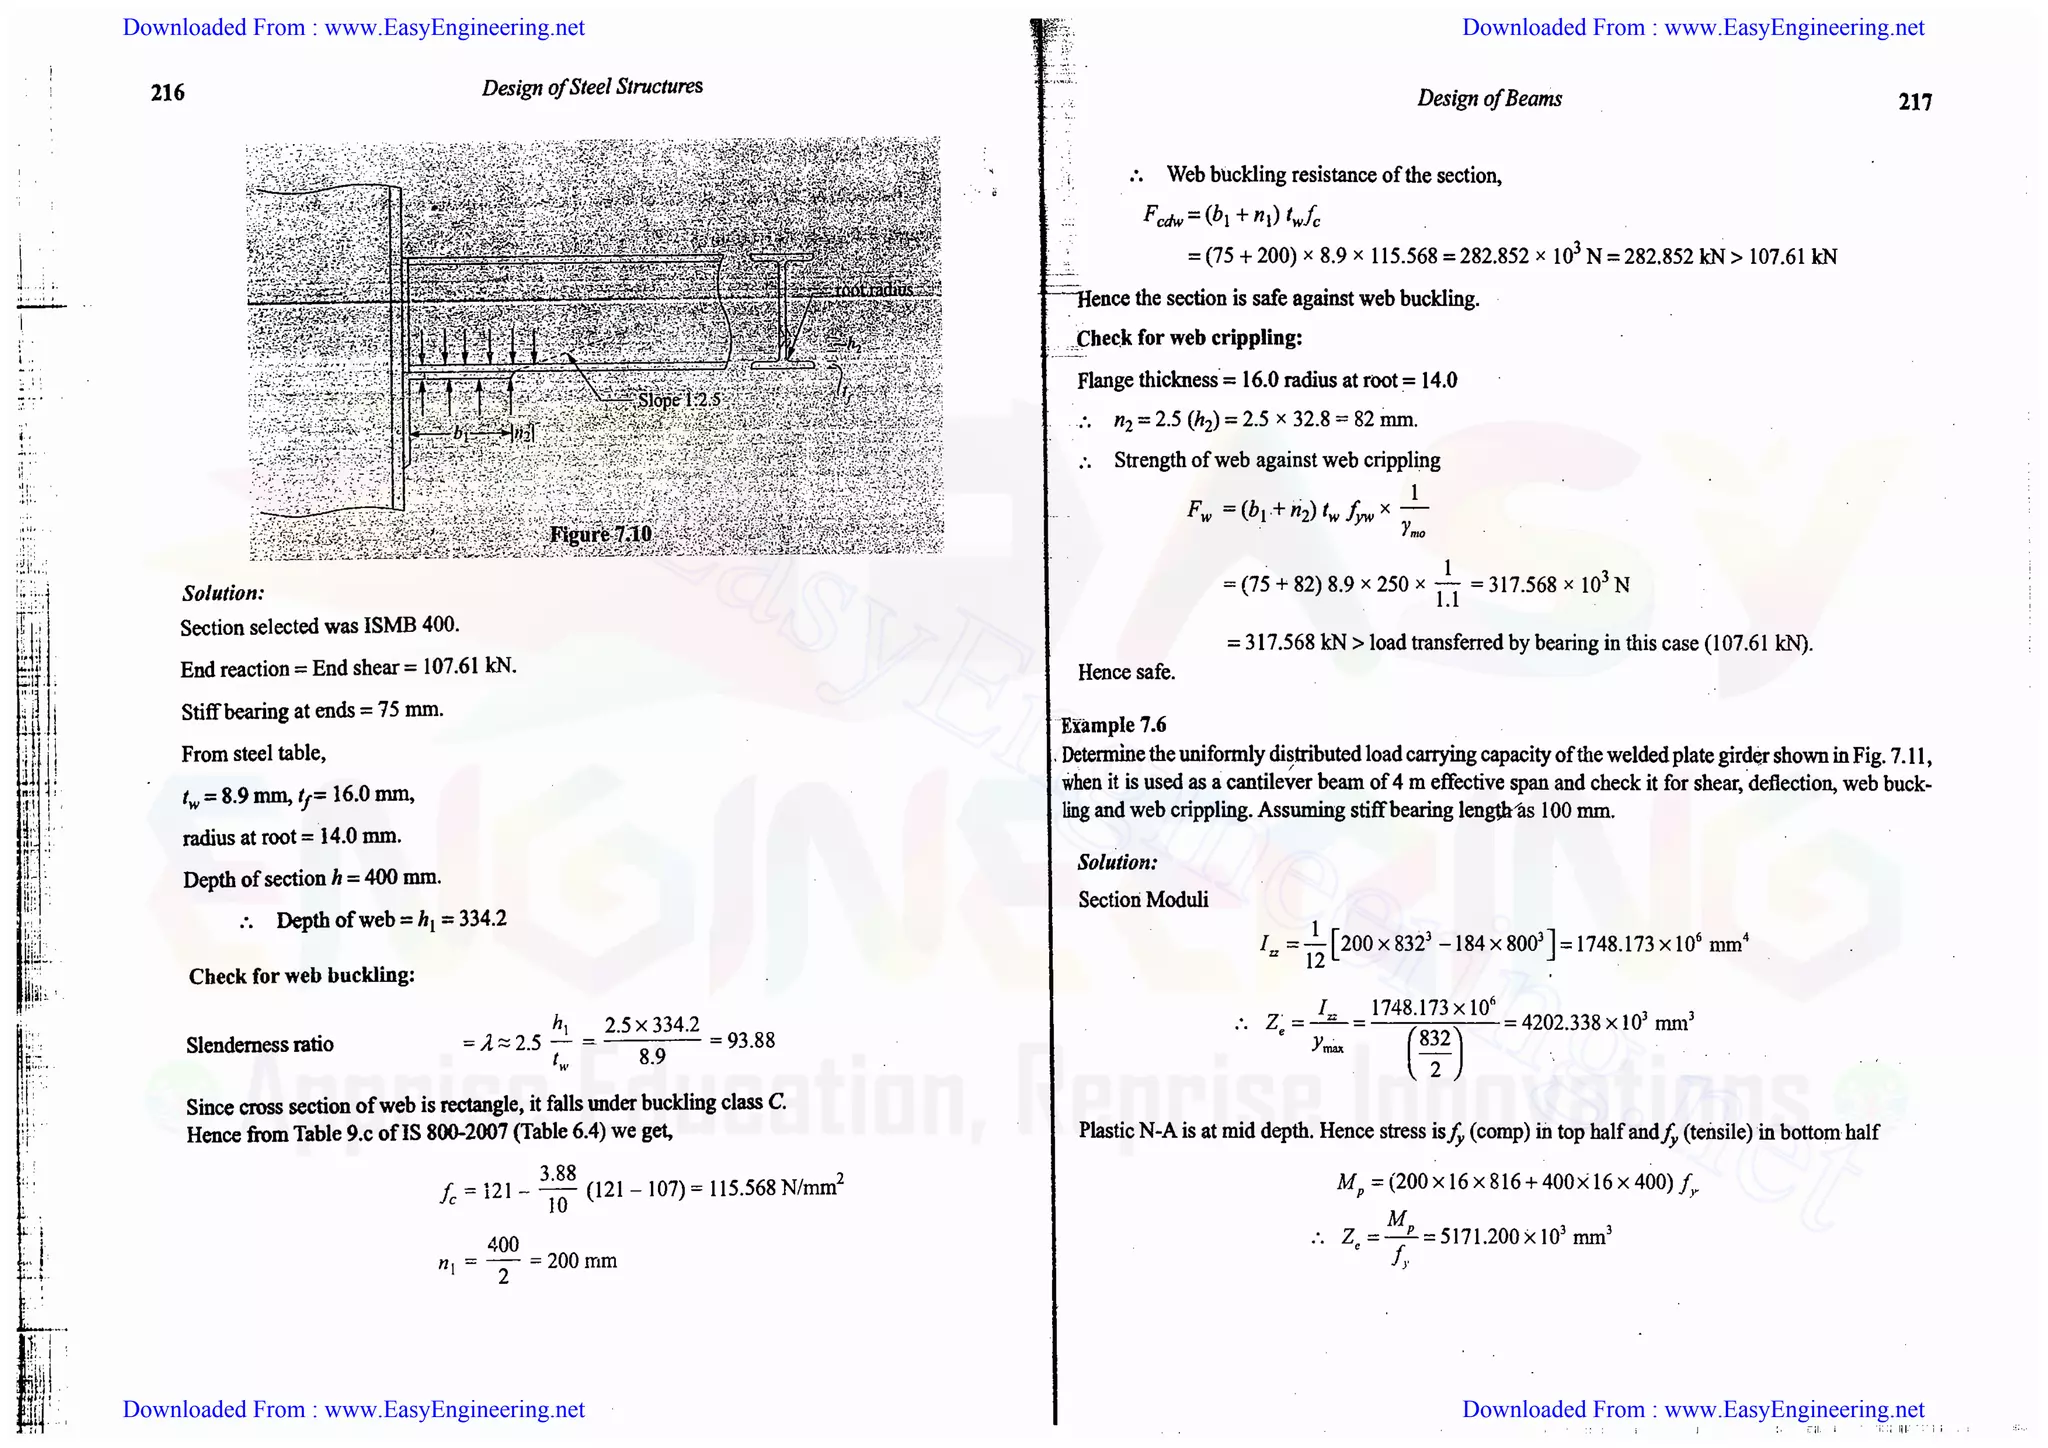 Downloaded From : www.EasyEngineering.net
216
Design of Steel Structures
root radius
h2
tf
Slope 1:2.5
b1 n2
Figure 7.10
Solution:
Section selected was ISMB 400.
End reaction = End shear = 107.61 kN.
Stiff bearing at ends = 75 mm.
From steel table,
tw = 8.9 mm, tf = 16.0 mm,
radius at root = 14.0 mm.
Depth of section h = 400 mm.
∴ Depth of web = h1 = 334.2
Check for web buckling:
Slenderness ratio = λ ≈ 2.5 h1/tw = 2.5 × 334.2/8.9 = 93.88
Since cross section of web is rectangle, it falls under buckling class C.
Hence from Table 9.c of IS 800-2007 (Table 6.4) we get,
fc = 121 - 3.88/10 (121 - 107) = 115.568 N/mm²
n1 = 400/2 = 200 mm
Downloaded From : www.EasyEngineering.net
Downloaded From : www.EasyEngineering.net
Design of Beams
217
∴ Web buckling resistance of the section,
Fcdw = (b1 + n1) tw fc
= (75 + 200) × 8.9 × 115.568 = 282.852 × 10³ N = 282.852 kN > 107.61 kN
Hence the section is safe against web buckling.
Check for web crippling:
Flange thickness = 16.0 radius at root = 14.0
∴ n2 = 2.5 (h2) = 2.5 × 32.8 = 82 mm.
∴ Strength of web against web crippling
Fw = (b1 + n2) tw fyw × 1/γmo
= (75 + 82) 8.9 × 250 × 1/1.1 = 317.568 × 10³ N
= 317.568 kN > load transferred by bearing in this case (107.61 kN).
Hence safe.
Example 7.6
Determine the uniformly distributed load carrying capacity of the welded plate girder shown in Fig. 7.11,
when it is used as a cantilever beam of 4 m effective span and check it for shear, deflection, web buck-
ling and web crippling. Assuming stiff bearing length as 100 mm.
Solution:
Section Moduli
Izz = 1/12 [200 × 832³ - 184 × 800³] = 1748.173 × 10⁶ mm⁴
∴ Ze = Izz/ymax = 1748.173 × 10⁶/(832/2) = 4202.338 × 10³ mm³
Plastic N-A is at mid depth. Hence stress is fy (comp) in top half and fy (tensile) in bottom half
Mp = (200 × 16 × 816 + 400 × 16 × 400) fy
∴ Ze = Mp/fy = 5171.200 × 10³ mm³
Downloaded From : www.EasyEngineering.net
EASY
ENGINEERING
Apprise Education, Reprise Innovations
EasyEngineering.net